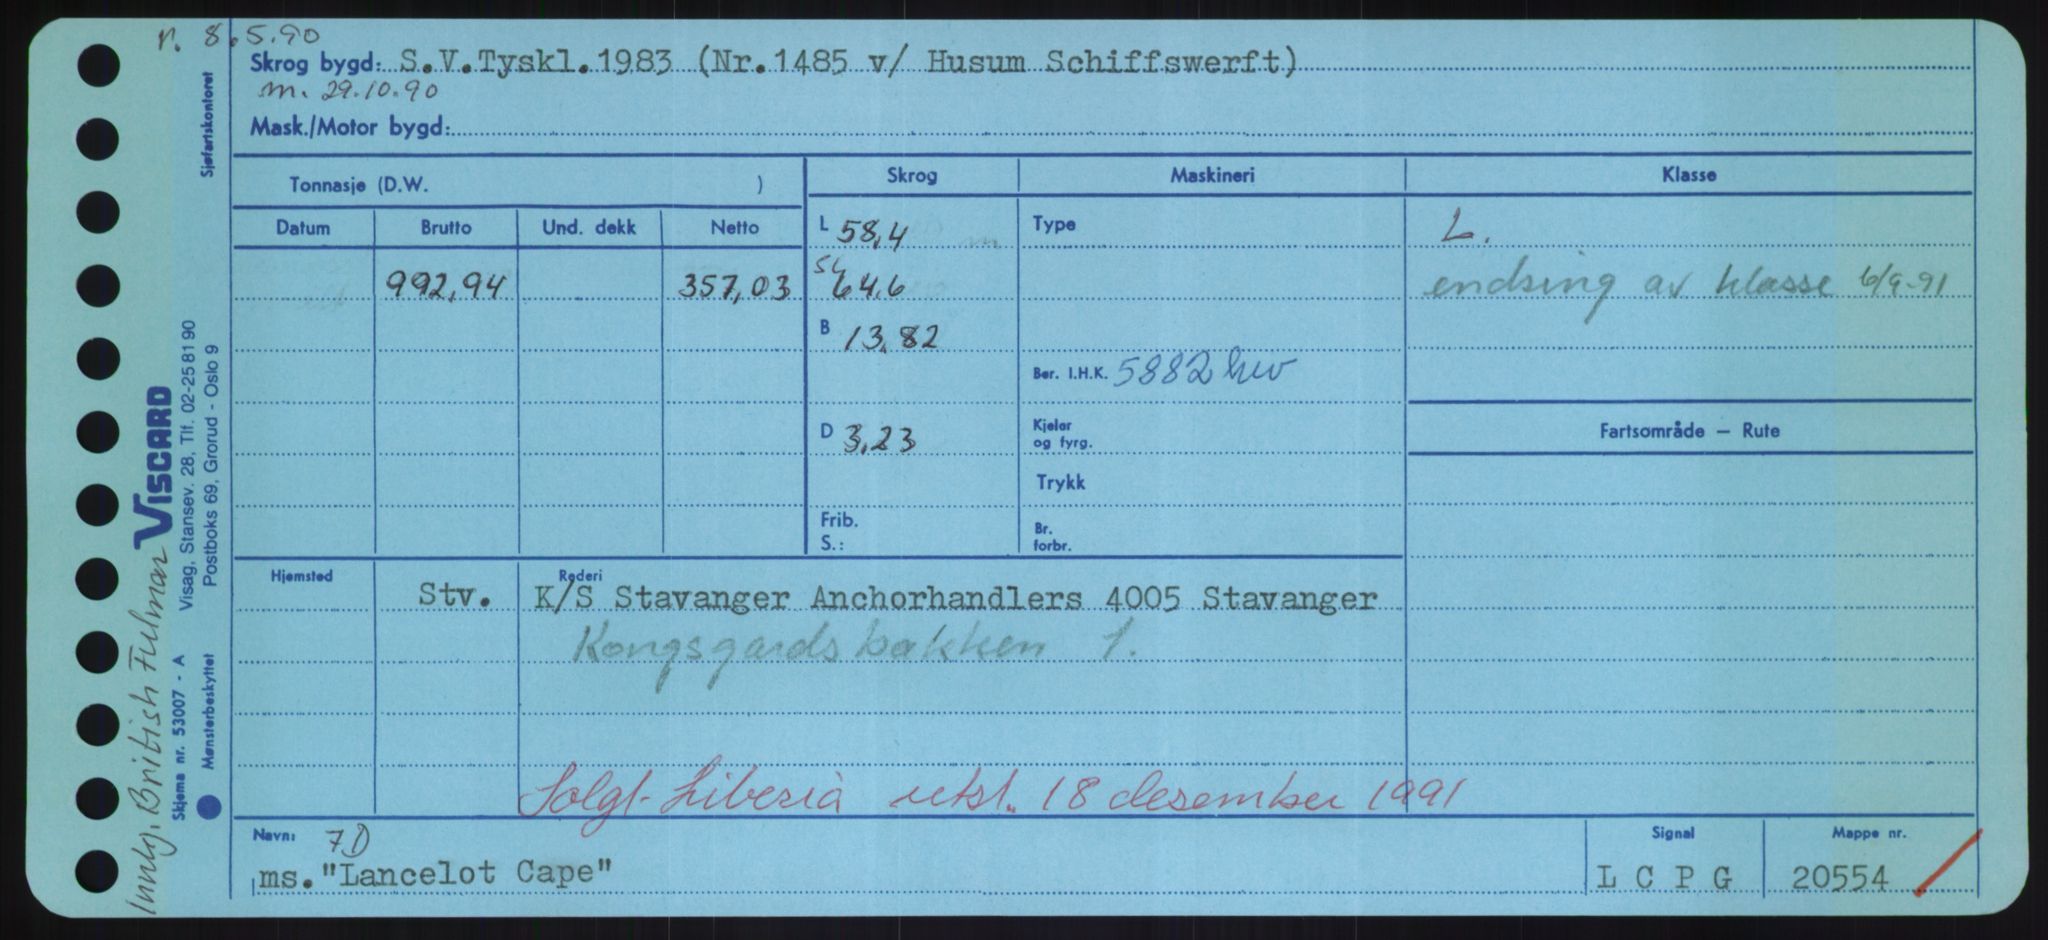 r. 8.5.90
Skrog bygd: S.V.Tyskl.1983 (Nr.1485 v/ Husum Schiffswerft)
m. 29.10.90
Mask./Motor bygd:
Sjøfartskontoret
Tonnasje (D.W. )
Skrog
Maskineri
Klasse
Datum
Brutto
Und. dekk
Netto
L 58,4
Type
L.
992,94
357,03
64,6
endring av klasse 6/9-91
B 13,82
Ber. I.H.K. 5882 hw
D 3,23
Kjeler
og fyrg.
Fartsområde — Rute
Trykk
Frib.
S.:
Br.
forbr.
Hjemsted
Rederi
Stv.
K/S Stavanger Anchorhandlers 4005 Stavanger
Kongsgardsbakken 1.
Solgt Liberia utst. 18 desember 1991
Navn: 7D
ms."Lancelot Cape"
Signal
L C P G
Mappe nr.
20554
Innkj. British Fulmar
VISCARD
Visag, Stansev. 28, Tlf. 02-25 81 90
Postboks 69, Grorud - Oslo 9
Skjema nr. 53007 - A
Mønsterbeskyttet